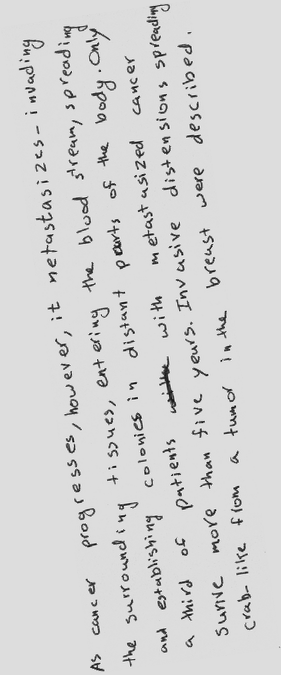 As cancer progresses, however, it metastasizes - invading
the surrounding tissues, entering the blood stream, spreading
and establishing colonies in distant parts of the body. Only
a third of patients with metastasized cancer
surive more than five years. Invasive distensions spreading
crab-like from a tumor in the breast were described.